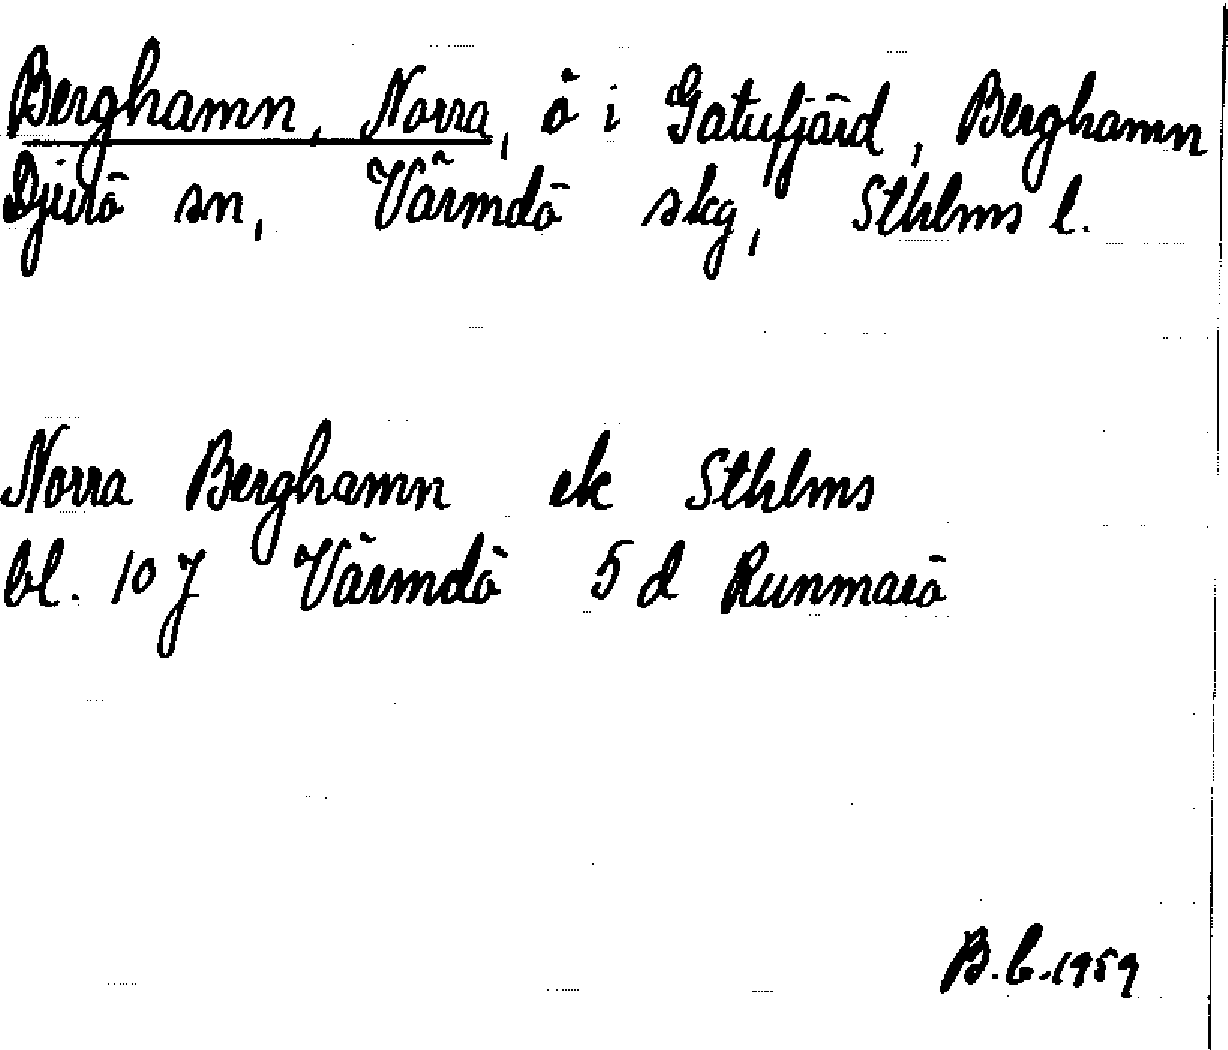 Berghamn, Norra, ö i Gatufjärd, Berghamn
Djurö sn, Värmdö skg, Sthlms l.
Norra Berghamn ek Sthlms
bl. 10 J Värmdö 5 d Runmarö
B.C.1959